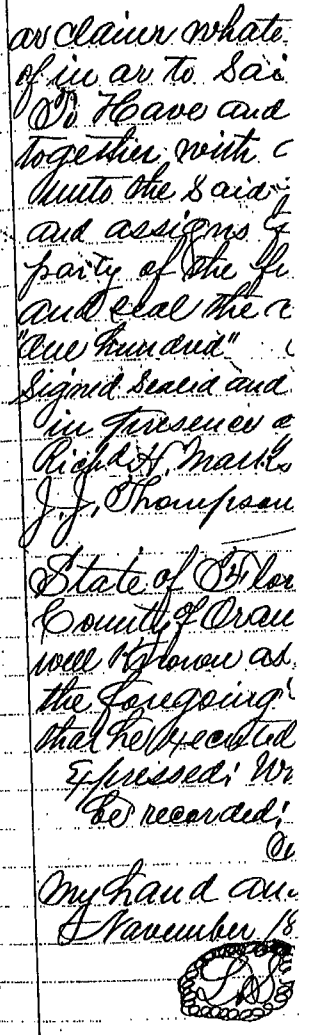 or claim whate
of in or to Sai
To Have and
together, with
unto the Said
and assigns
party of the fi
and seal the
"One hundred"
Signed Sealed and
in presence
Richd H. Marks
J. J. Thompson
State of Flor
County of Oran
well Known as
the foregoing
that he executed
Expressed; Wr
be recorded;
My hand and
November 18
L S